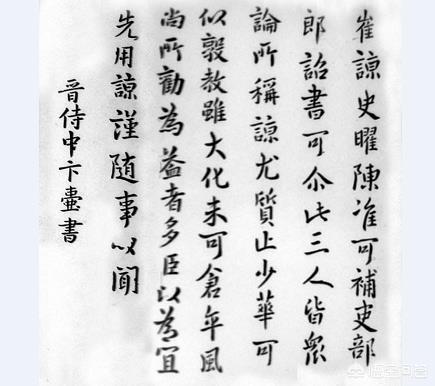 崔諒史曜陳准可補吏部
郎詔書可尒此三人皆衆
論所稱諒尤質止少華可
以敦教雖大化未可倉卒風
尚所勸為益者多臣以為宜
先用諒謹随事以聞
晋侍中卞壷書
悟空问答